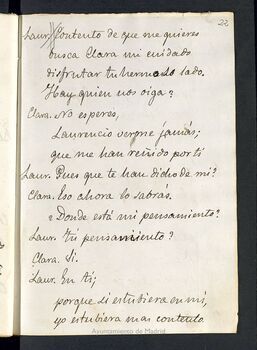 22
Laur. Contento de que me quieres
busca Clara mi cuidado
disfrutar tu hermoso lado.
Hay quien nos oiga?
Clara. No esperes,
Laurencio verme jamás;
que me han reñido por ti
Laur. Pues que te han dicho de mi?
Clara. Eso ahora lo sabrás.
¿Donde está mi pensamiento?
Laur. Tú pensamiento?
Clara. Si.
Laur. En ti;
porque si estubiera en mi,
yo estubiera mas contento.
Ayuntamiento de Madrid